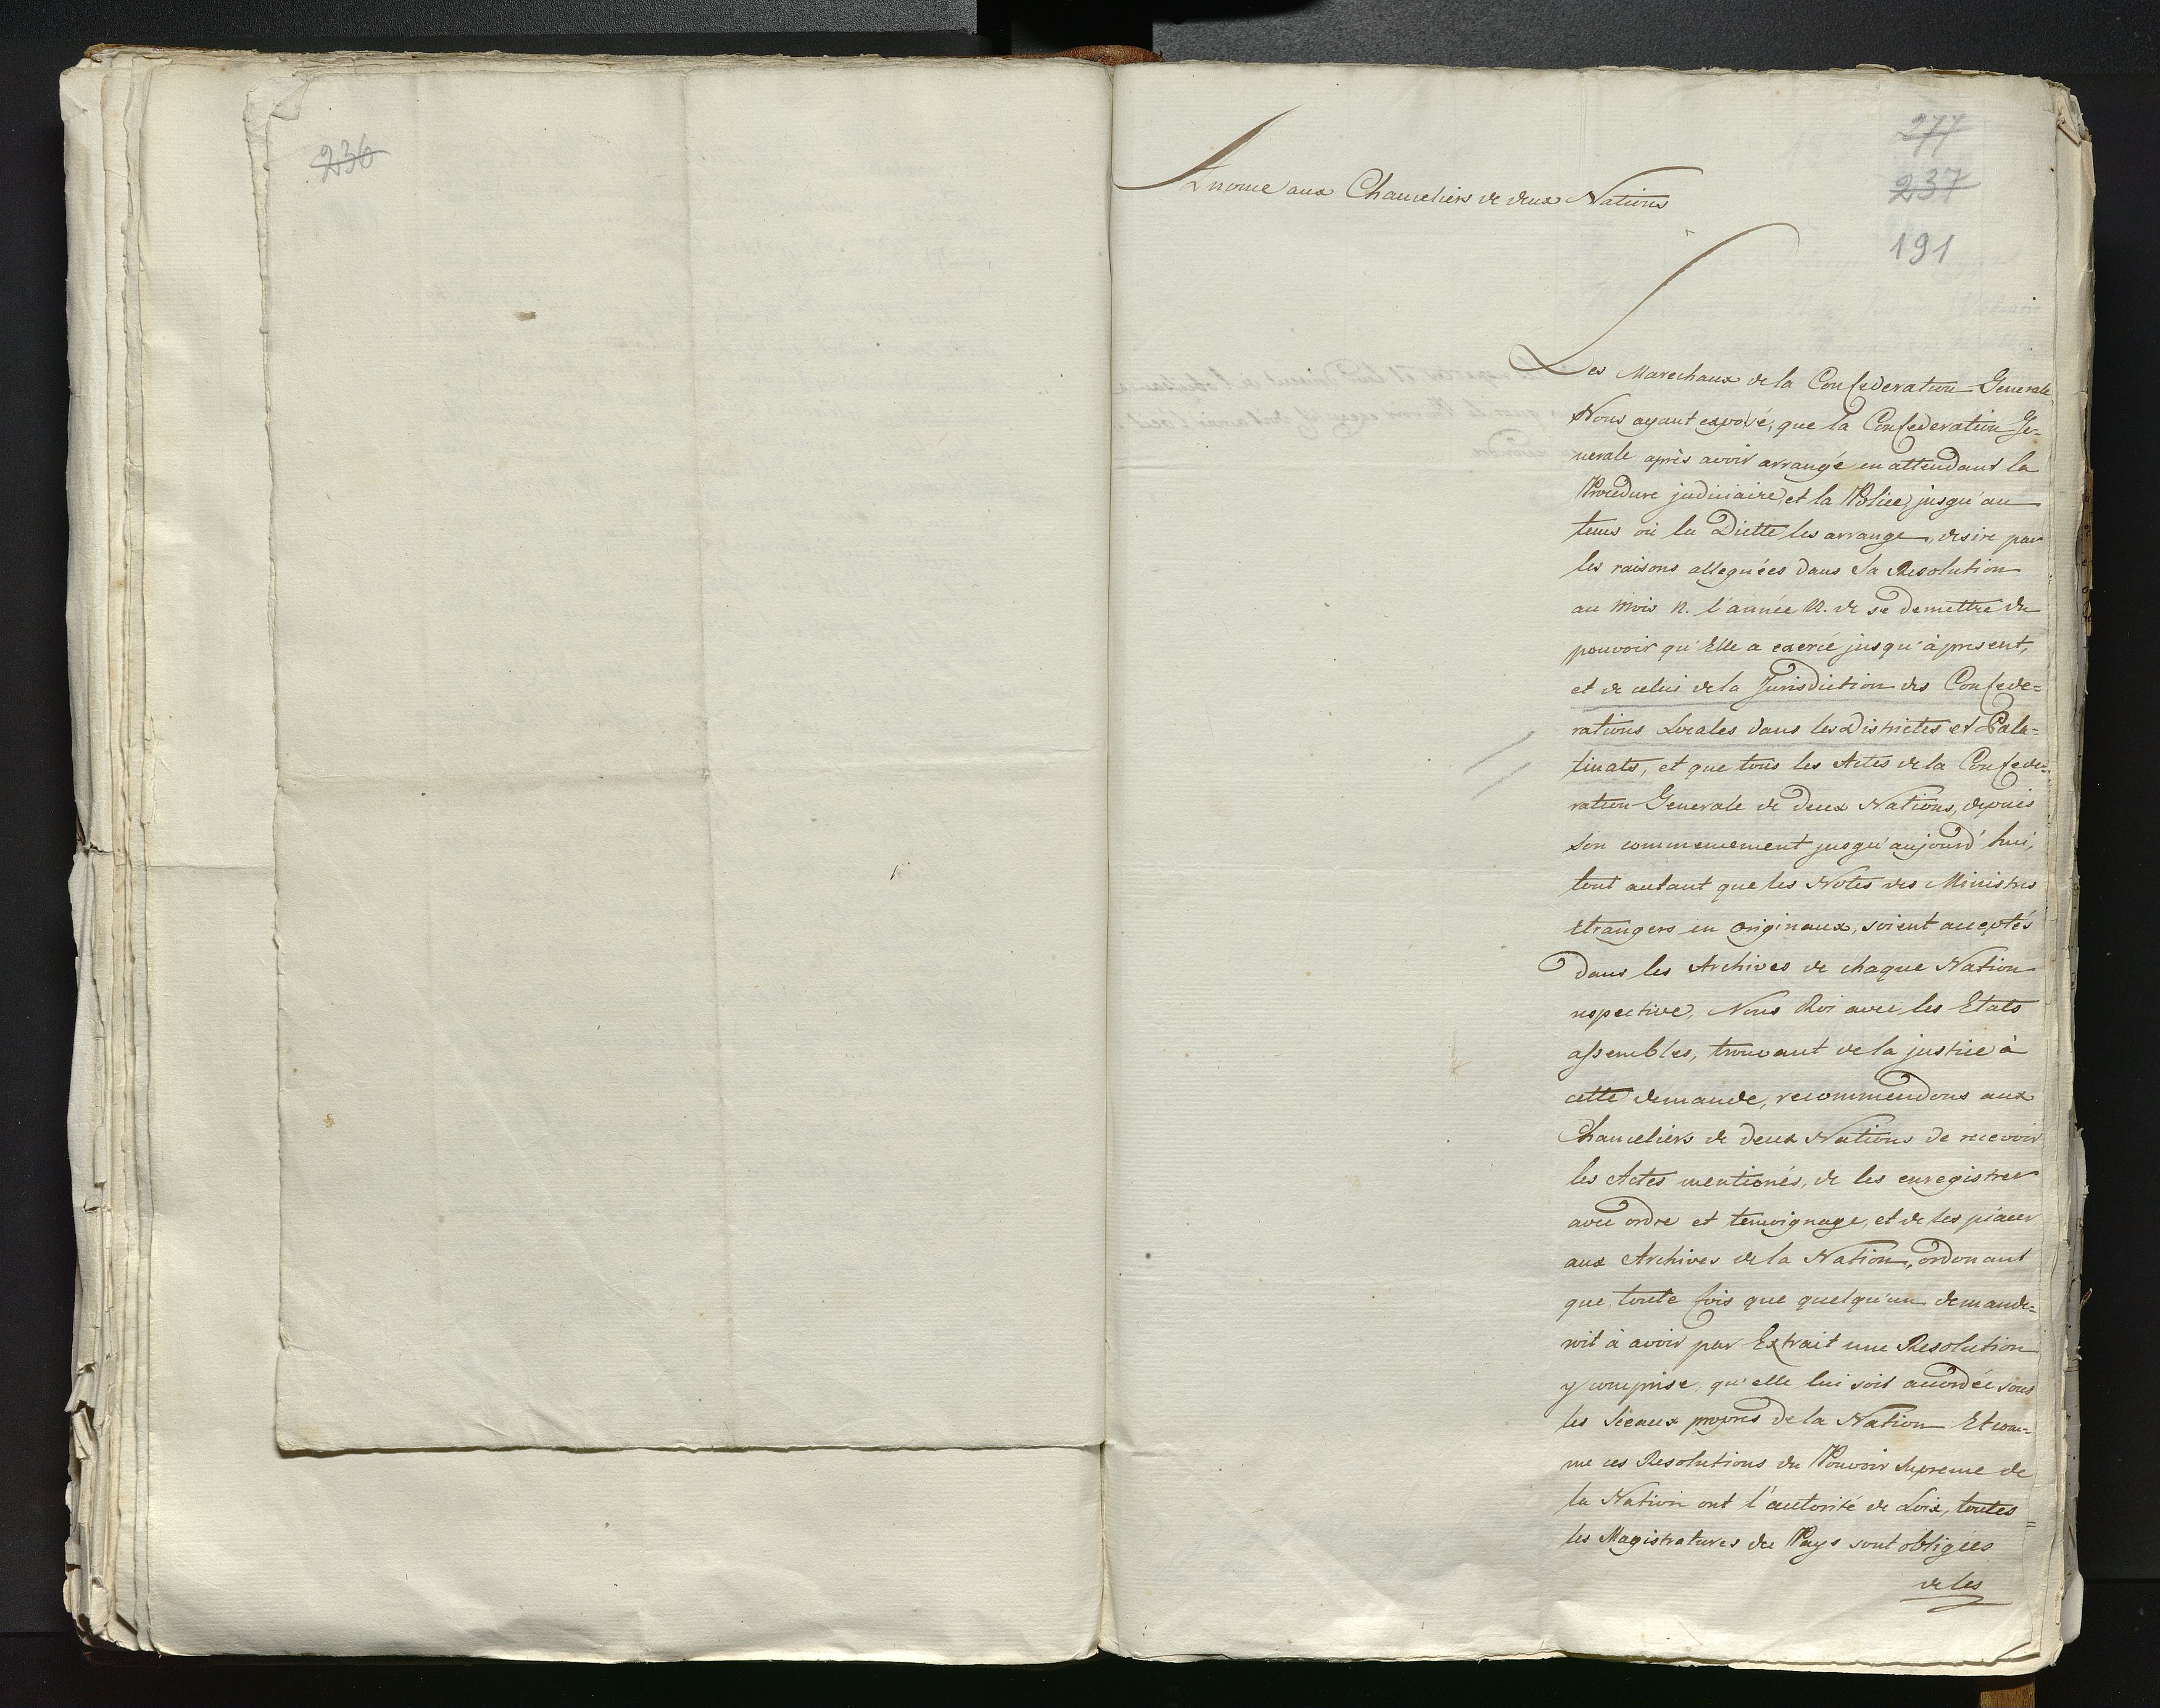 236
277
237
191
aux Chanceliers de deux Nations
Les Marechaux de la Confederation Generale
Nous ayant exposé, que la Confederation Ge=
nerale après avoir arrangé en attendant la
Procedure judiciaire, et la Police, jusqu'au
tems où la Diette les arrange, desire par
les raisons alleguées dans sa Resolution
au mois n. l'année n. de se demettre du
pouvoir qu'Elle a exercé jusqu'à present,
et de celui de la Jurisdiction des Confede=
rations Locales dans les Districtes et Pala=
tinats, et que tous les Actes de la Confede=
ration Generale de deux Nations, depuis
son commencement jusqu'aujourd'hui,
tout autant que les Notes des Ministres
etrangers en originaux, soient acceptés
dans les Archives de chaque Nation
respective, Nous Roi avec les Etats
assembles, trouvant de la justice à
cette demande, recommendons aux
Chanceliers de deux Nations de recevoir
les Actes mentionés, de les enregistrer
avec ordre et temoignage, et de les placer
aux Archives de la Nation, ordonant
que toute fois que quelqu'un demande=
roit à avoir par Extrait une Resolution
y comprise, qu'elle lui soit accordée sous
les Sceaux propres de la Nation Et com=
me ces Resolutions du Pouvoir Supreme de
la Nation ont l'autorité de Loix, toutes
les Magistratures du Pays sont obligées
de les